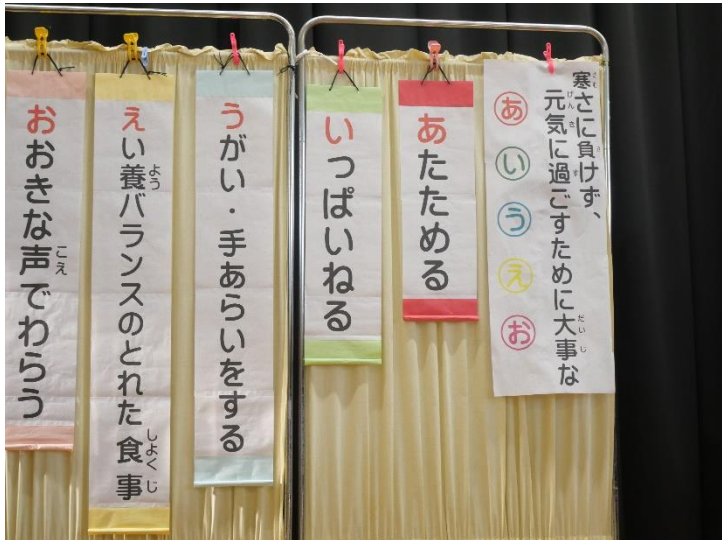 寒さに負けず、
元気に過ごすために大事な
あいうえお
あたためる
いっぱいねる
うがい・手あらいをする
えい養バランスのとれた食事
おおきな声でわらう